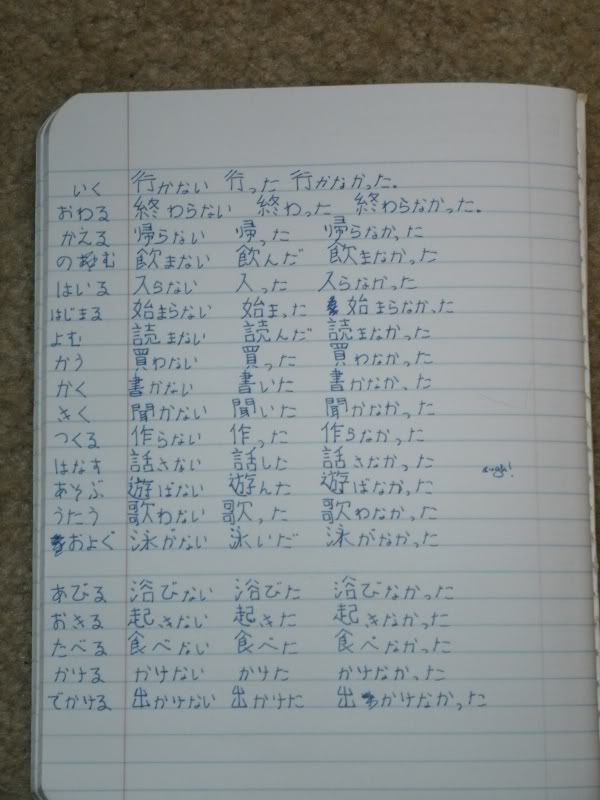 いく 行かない 行った 行かなかった。
おわる 終わらない 終わった 終わらなかった。
かえる 帰らない 帰った 帰らなかった
のむ 飲まない 飲んだ 飲まなかった
はいる 入らない 入った 入らなかった
はじまる 始まらない 始まった 始まらなかった
よむ 読まない 読んだ 読まなかった
かう 買わない 買った 買わなかった
かく 書かない 書いた 書かなかった
きく 聞かない 聞いた 聞かなかった
つくる 作らない 作った 作らなかった
はなす 話さない 話した 話さなかった augh!
あそぶ 遊ばない 遊んた 遊ばなかった
うたう 歌わない 歌った 歌わなかった
およぐ 泳がない 泳いだ 泳がなかった
あびる 浴びない 浴びた 浴びなかった
おきる 起きない 起きた 起きなかった
たべる 食べない 食べた 食べなかった
かける かけない かけた かけなかった
でかける 出かけない 出かけた 出かけなかった